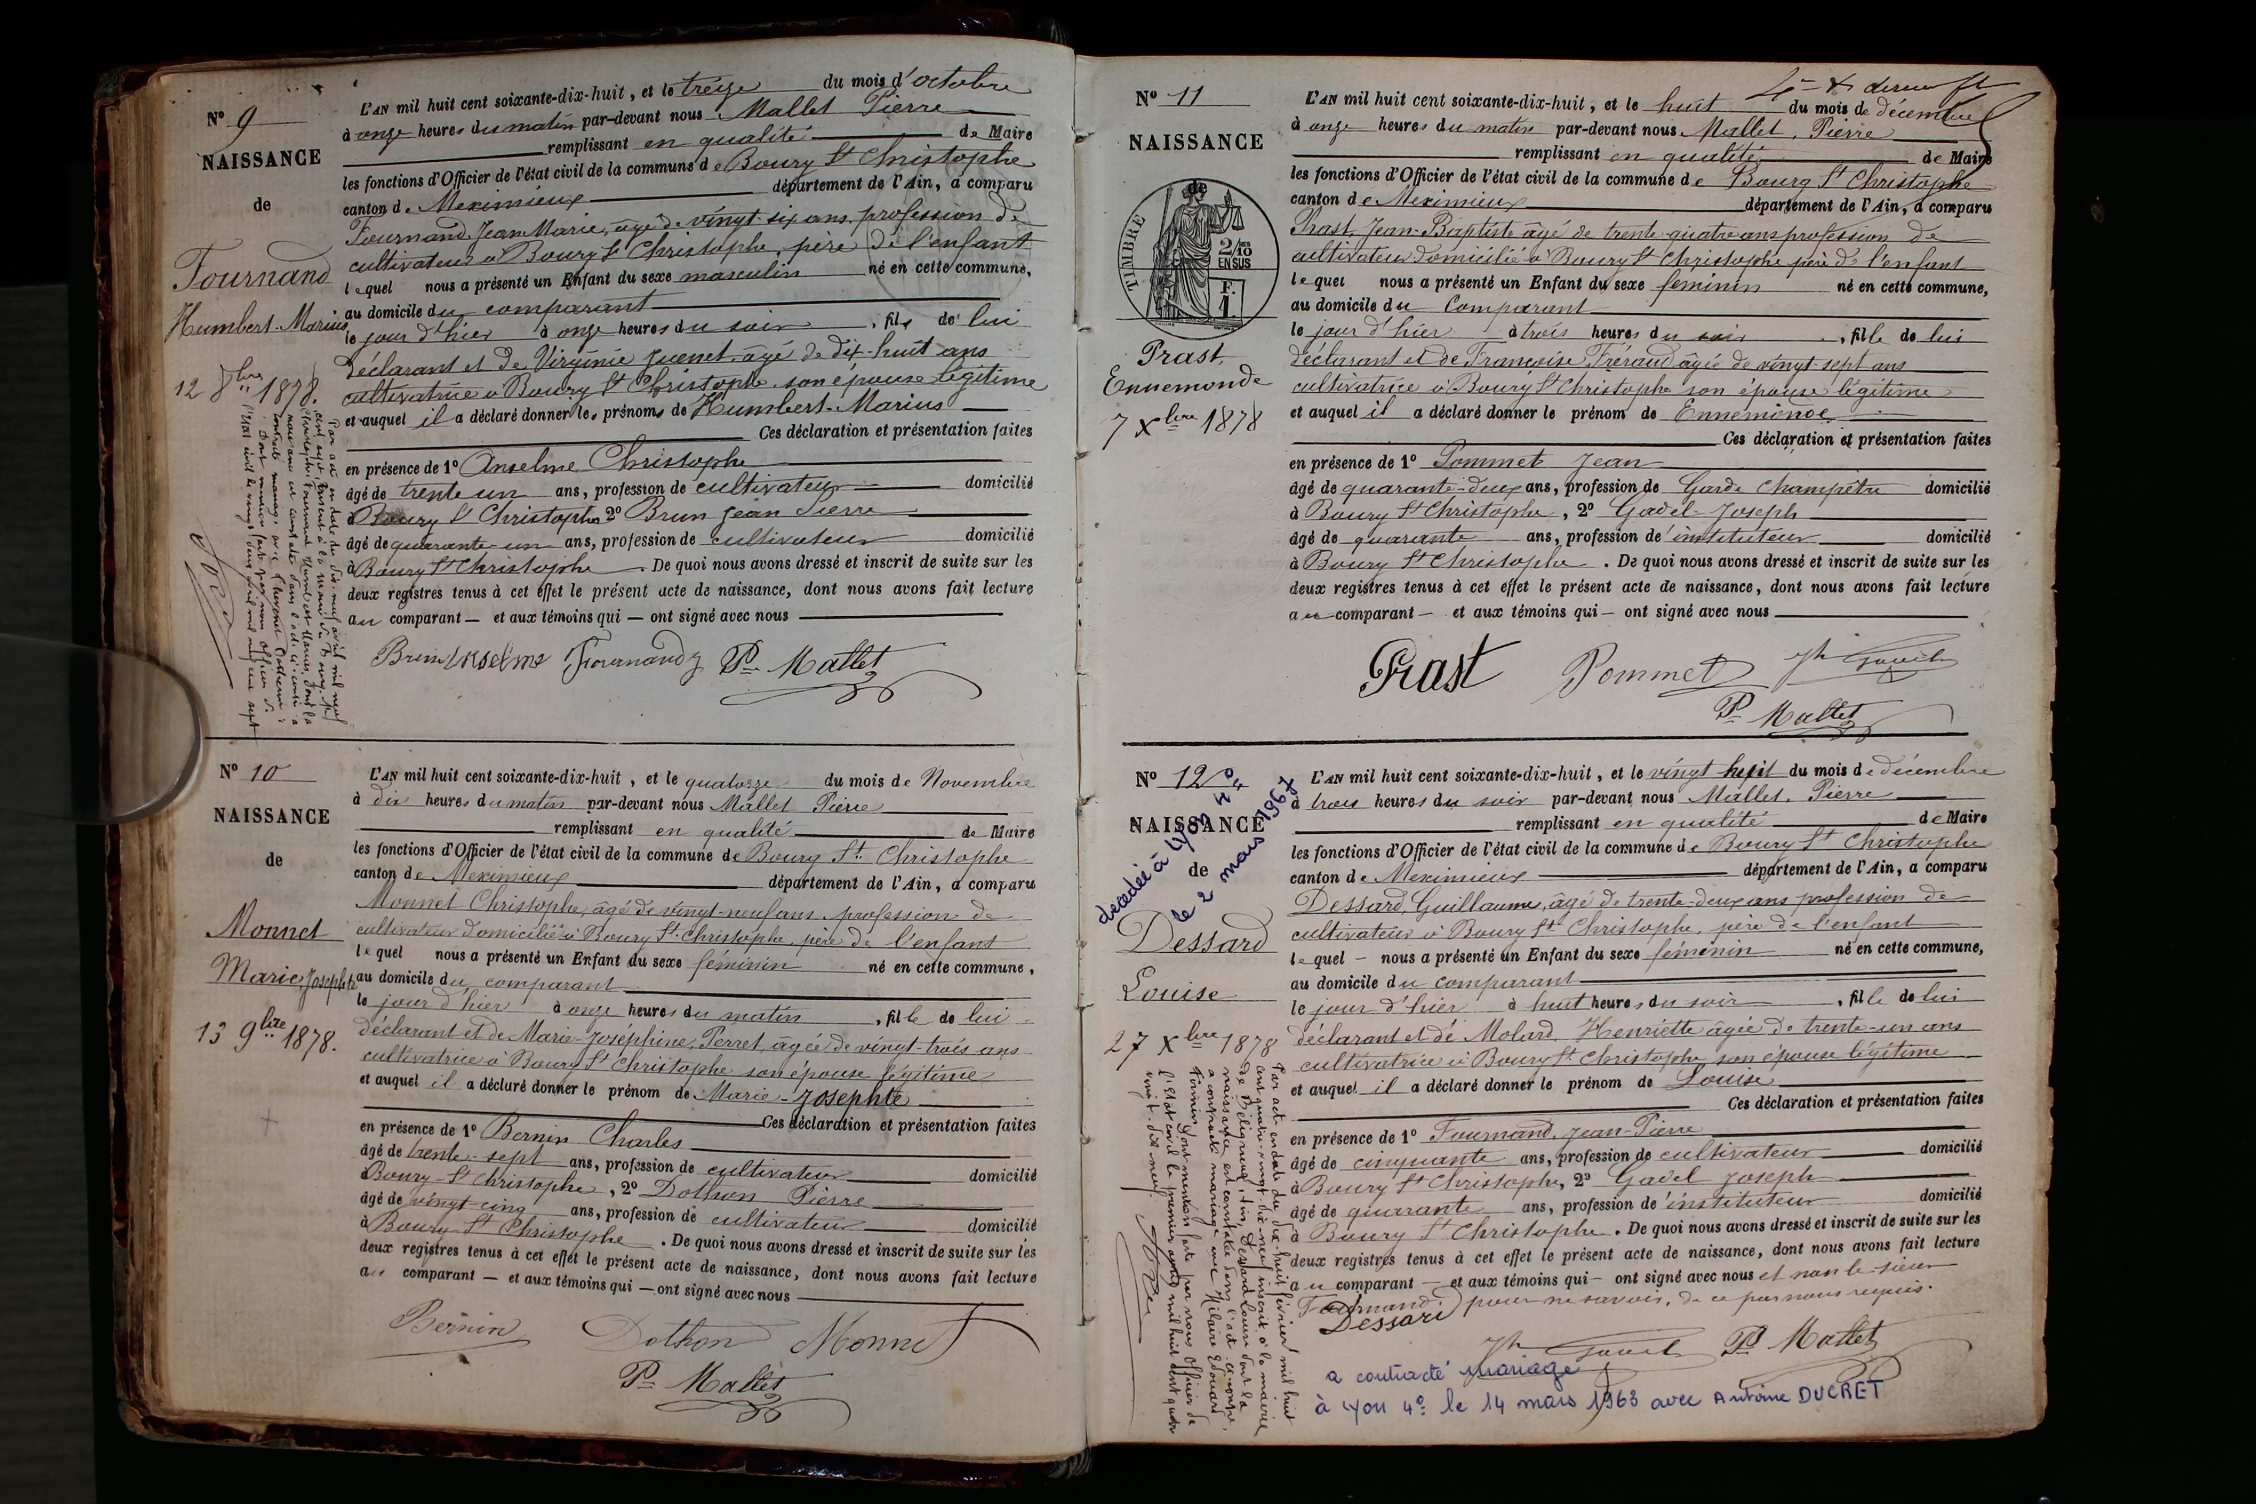 N° 9
NAISSANCE
de
Fournand
Humbert-Marius
12 8bre 1878.
L'AN mil huit cent soixante-dix-huit, et le treize du mois d'octobre
à onze heures du matin par-devant nous Mallet Pierre
remplissant en qualité de Maire
les fonctions d'Officier de l'état civil de la commune de Bourg St Christophe
canton de Meximieux département de l'Ain, a comparu
Fournand Jean Marie, âgé de vingt-six ans profession de
cultivateur à Bourg St Christophe, père de l'enfant
lequel nous a présenté un Enfant du sexe masculin né en cette commune,
au domicile du comparant
le jour d'hier à onze heures du soir, fils de lui
déclarant et de Virginie Juenet, âgé de dix-huit ans
cultivatrice à Bourg St Christophe son épouse légitime
et auquel il a déclaré donner les prénoms de Humbert-Marius
Ces déclaration et présentation faites
en présence de 1° Anselme Christophe
âgé de trente un ans, profession de cultivateur domicilié
à Bourg St Christophe 2° Brun Jean Pierre
âgé de quarante-un ans, profession de cultivateur domicilié
à Bourg St Christophe. De quoi nous avons dressé et inscrit de suite sur les
deux registres tenus à cet effet le présent acte de naissance, dont nous avons fait lecture
au comparant — et aux témoins qui — ont signé avec nous
Brun Anselme Fournand P. Mallet
Par acte en date du dix-neuf avril mil neuf
cent sept, inscrit à la mairie de Bourg-St
Christophe, Fournand Humbert Marius, dont la
naissance est constatée dans l'acte ci-contre a
contracté mariage avec
Dont mention faite par nous Officier de
l'Etat civil le vingt deux avril mil neuf cent sept
N° 10
NAISSANCE
de
Monnet
Marie-Josephte
13 9bre 1878.
L'AN mil huit cent soixante-dix-huit, et le quatorze du mois de Novembre
à dix heures du matin par-devant nous Mallet Pierre
remplissant en qualité de Maire
les fonctions d'Officier de l'état civil de la commune de Bourg St Christophe
canton de Meximieux département de l'Ain, a comparu
Monnet Christophe, âgé de vingt-neuf ans profession de
cultivateur domicilié à Bourg St Christophe, père de l'enfant
lequel nous a présenté un Enfant du sexe féminin né en cette commune,
au domicile du comparant
le jour d'hier à onze heures du matin, fille de lui
déclarant et de Marie-Joséphine Perret, âgée de vingt-trois ans
cultivatrice à Bourg St Christophe son épouse légitime
et auquel il a déclaré donner le prénom de Marie-Josephte
Ces déclaration et présentation faites
en présence de 1° Bernin Charles
âgé de trente-sept ans, profession de cultivateur domicilié
à Bourg-St Christophe, 2° Dothon Pierre
âgé de vingt-cinq ans, profession de cultivateur domicilié
à Bourg-St Christophe. De quoi nous avons dressé et inscrit de suite sur les
deux registres tenus à cet effet le présent acte de naissance, dont nous avons fait lecture
au comparant — et aux témoins qui — ont signé avec nous
Bernin Dothon Monnet
P. Mallet
4e & dernier ft
N° 11
NAISSANCE
de
TIMBRE
2/10
EN SUS
F.
1.
Prast
Ennemonde
7 Xbre 1878
L'AN mil huit cent soixante-dix-huit, et le huit du mois de décembre
à onze heures du matin par-devant nous Mallet, Pierre
remplissant en qualité de Maire
les fonctions d'Officier de l'état civil de la commune de Bourg St Christophe
canton de Meximieux département de l'Ain, a comparu
Prast, Jean-Baptiste âgé de trente-quatre ans profession de
cultivateur domicilié à Bourg St Christophe père de l'enfant
lequel nous a présenté un Enfant du sexe féminin né en cette commune,
au domicile du Comparant
le jour d'hier à trois heures du soir, fille de lui
déclarant et de Françoise Tréraud âgée de vingt-sept ans
cultivatrice à Bourg St Christophe son épouse légitime
et auquel il a déclaré donner le prénom de Ennemonde
Ces déclaration et présentation faites
en présence de 1° Pommet Jean
âgé de quarante-deux ans, profession de Garde Champêtre domicilié
à Bourg St Christophe, 2° Gadel Joseph
âgé de quarante ans, profession d'instituteur domicilié
à Bourg St Christophe. De quoi nous avons dressé et inscrit de suite sur les
deux registres tenus à cet effet le présent acte de naissance, dont nous avons fait lecture
au comparant — et aux témoins qui — ont signé avec nous
Prast Pommet Jh Gadel
P. Mallet
N° 12
NAISSANCE
de
décédée à Lyon 4e
le 2 mars 1967
Dessard
Louise
27 Xbre 1878
L'AN mil huit cent soixante-dix-huit, et le vingt huit du mois de décembre
à trois heures du soir par-devant nous Mallet, Pierre
remplissant en qualité de Maire
les fonctions d'Officier de l'état civil de la commune de Bourg St Christophe
canton de Meximieux département de l'Ain, a comparu
Dessard, Guillaume, âgé de trente-deux ans profession de
cultivateur à Bourg St Christophe, père de l'enfant
lequel — nous a présenté un Enfant du sexe féminin né en cette commune,
au domicile du comparant
le jour d'hier à huit heures du soir, fille de lui
déclarant et de Molard Henriette âgée de trente-un ans
cultivatrice à Bourg St Christophe son épouse légitime
et auquel il a déclaré donner le prénom de Louise
Ces déclaration et présentation faites
en présence de 1° Fournand, Jean-Pierre
âgé de cinquante ans, profession de cultivateur domicilié
à Bourg St Christophe, 2° Gadel Joseph
âgé de quarante ans, profession d'instituteur domicilié
à Bourg St Christophe. De quoi nous avons dressé et inscrit de suite sur les
deux registres tenus à cet effet le présent acte de naissance, dont nous avons fait lecture
au comparant — et aux témoins qui — ont signé avec nous et non le sieur
Fournand pour ne savoir, de ce par nous requis.
Dessard
Jh Gadel P. Mallet
Par acte en date du dix-huit février mil huit
cent quatre-vingt-dix-neuf inscrit à la mairie
de Béligneux, Ain, Dessard Louise dont la
naissance est constatée dans l'acte ci-contre,
a contracté mariage avec Hilaire Edouard
Dont mention faite par nous Officier de
l'Etat civil le premier avril mil huit cent quatre
vingt-dix neuf
a contracté mariage
à Lyon 4e le 14 mars 1963 avec Antoine DUCRET